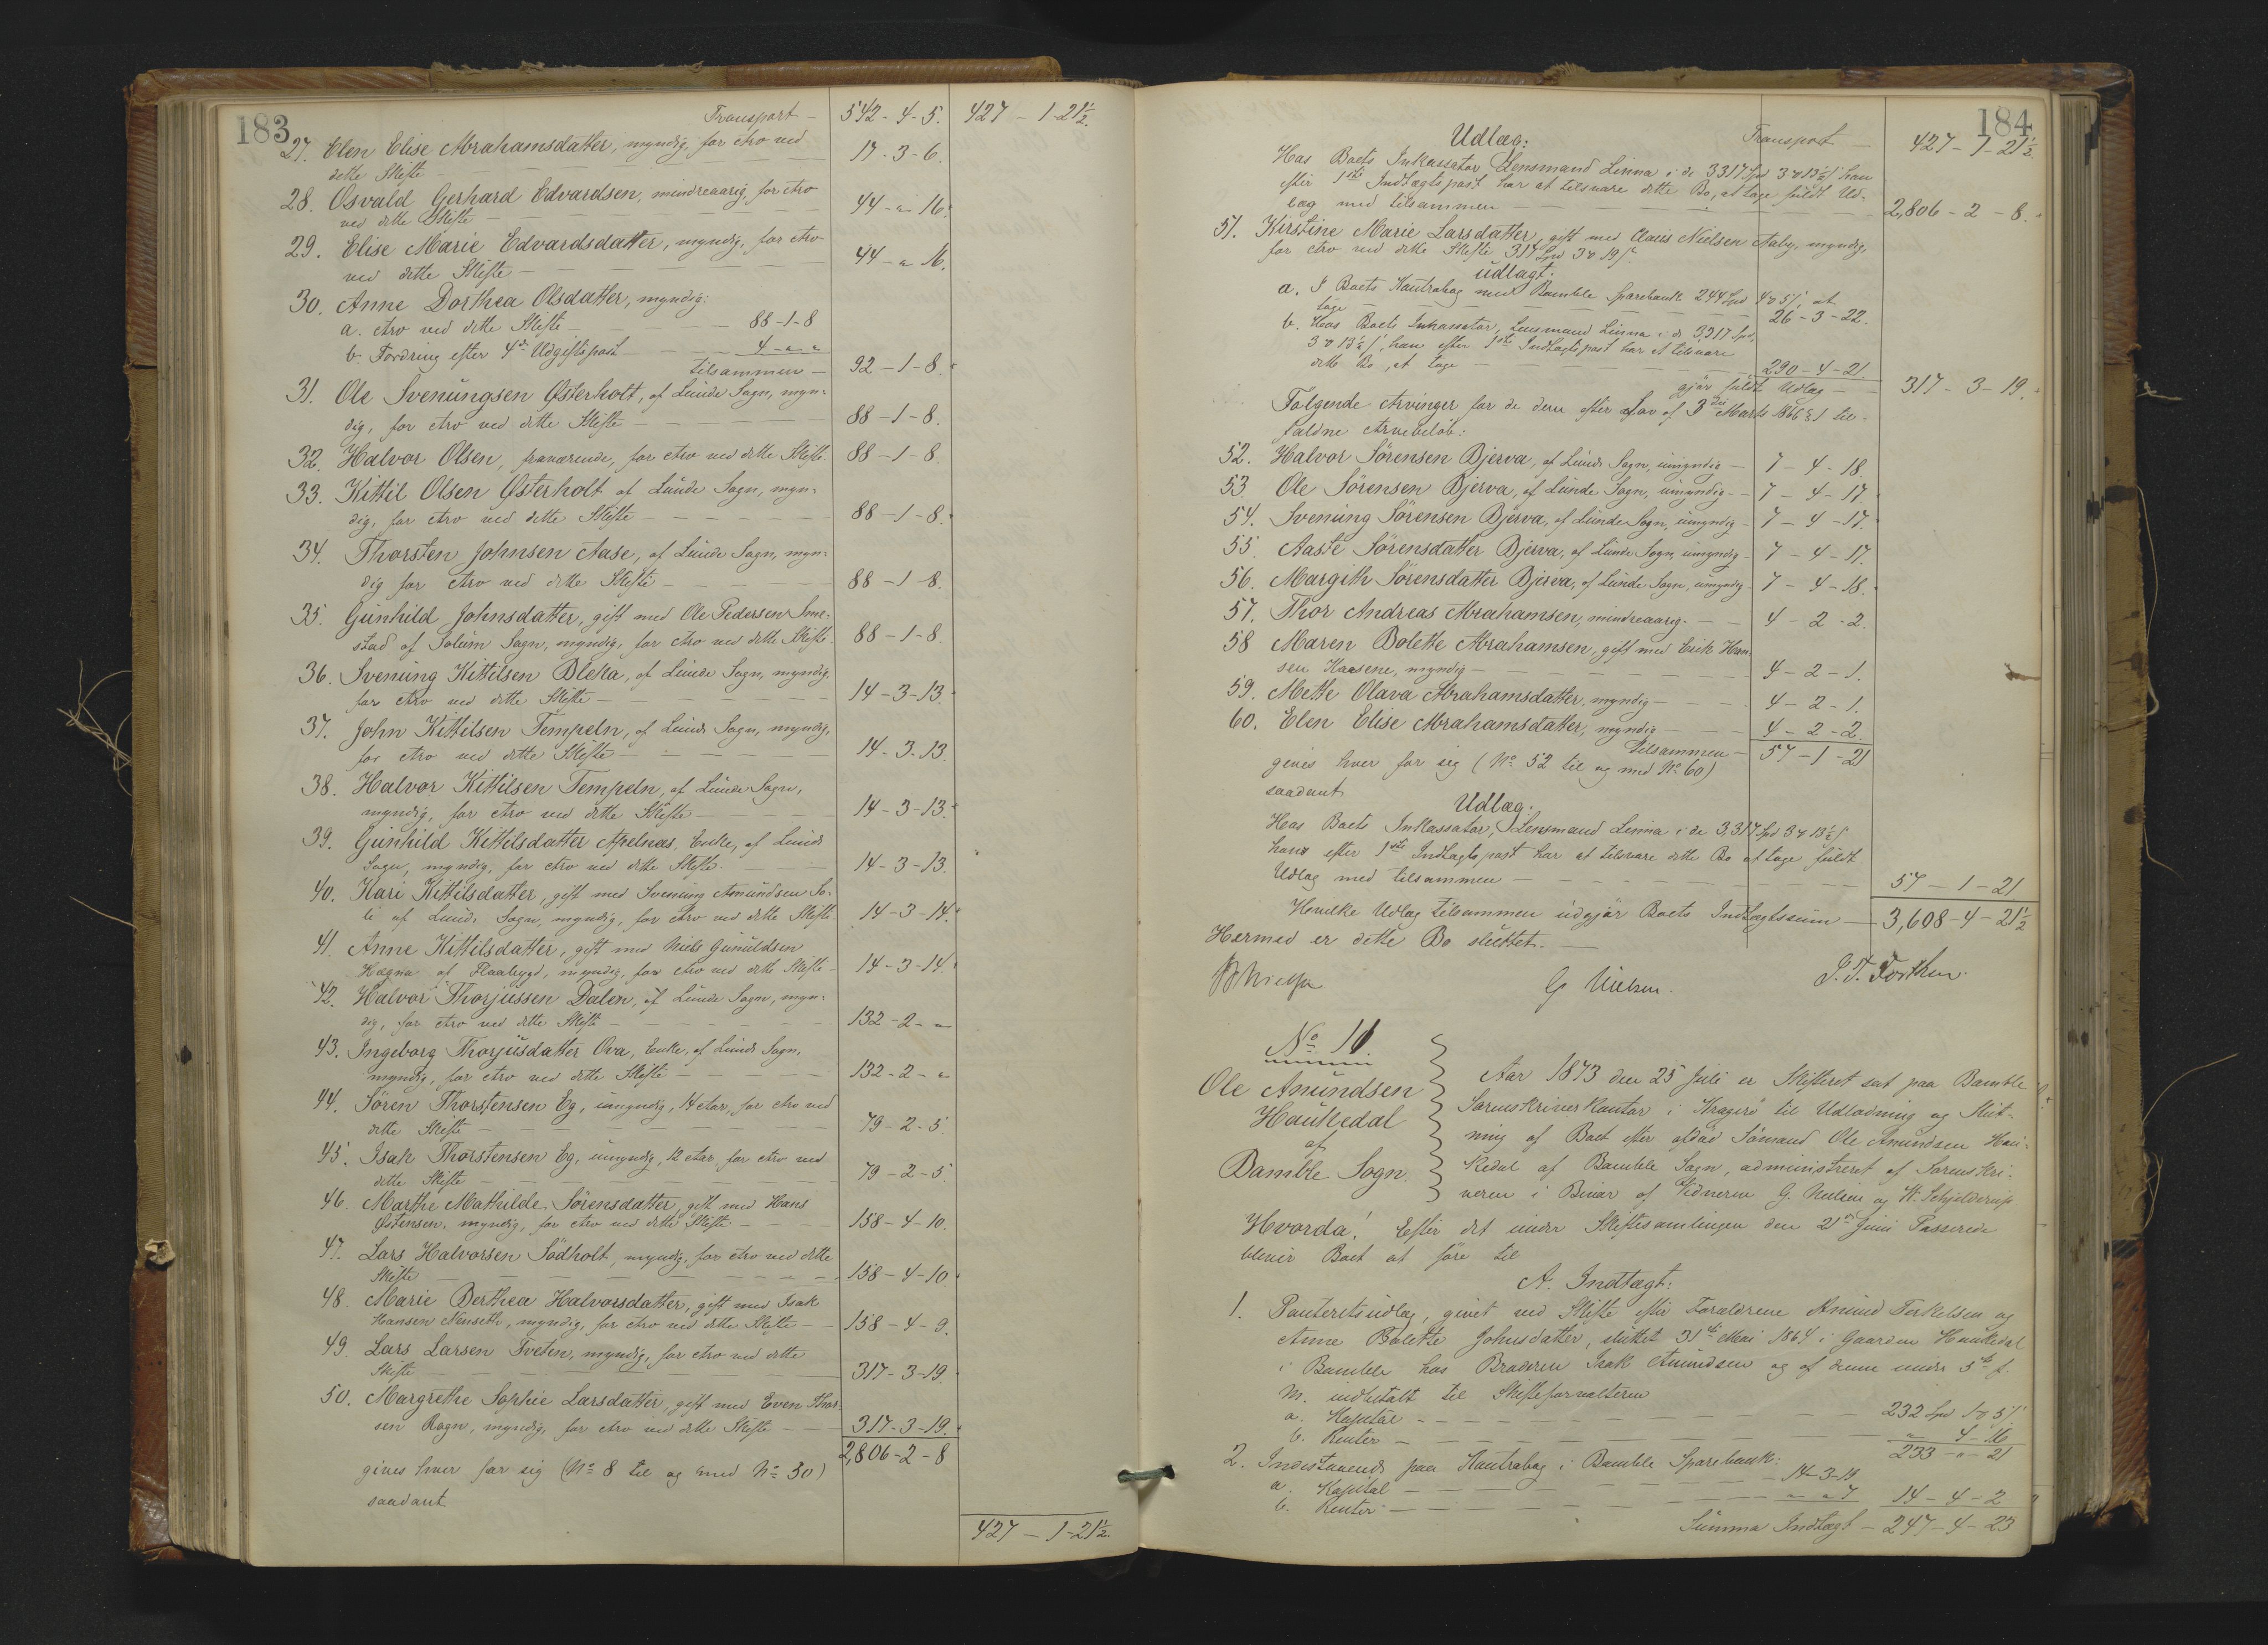 183
Transport – 542-4-5. 427 – 1-21½.
27. Elen Elise Abrahamsdatter, myndig, for Arv ved
dette Skifte – 17-3-6.
28. Osvald Gerhard Edvardsen, mindreaarig, for Arv
ved dette Skifte – 44-"-16.
29. Elise Marie Edvardsdatter, myndig, for Arv
ved dette Skifte – 44-"-16.
30. Anne Dorthea Olsdatter, myndig:
a. Arv ved dette Skifte – 88-1-8
b. Fordring efter 4de Udgiftspost – 4-"-"
tilsammen – 92-1-8.
31. Ole Svenüngsen Østerholt, af Lünde Sogn, myn-
dig, for Arv ved dette Skifte – 88-1-8.
32. Halvor Olsen, fraværende, for Arv ved dette Skifte. 88-1-8.
33. Kittil Olsen Østerholt af Lünde Sogn, myn-
dig, for Arv ved dette Skifte – 88-1-8.
34. Thorsten Johnsen Aase, af Lünde Sogn, myn-
dig for Arv ved dette Skifte – 88-1-8.
35. Günhild Johnsdatter, gift med Ole Pedersen Sme-
stad af Solum Sogn, myndig, for Arv ved dette Skifte. 88-1-8.
36. Svenüng Kittilsen Bleka, af Lünde Sogn, myndig,
for Arv ved dette Skifte – 14-3-13.
37. John Kittilsen Tempeln, af Lünde Sogn, myndig,
for Arv ved dette Skifte – 14-3-13.
38. Halvor Kittilsen Tempeln, af Lünde Sogn,
myndig, for Arv ved dette Skifte – 14-3-13.
39. Günhild Kittilsdatter Apelnæs, Enke, af Lünde
Sogn, myndig, for Arv ved dette Skifte. 14-3-13.
40. Kari Kittilsdatter, gift med Svenüng Amündsen So-
li af Lünde Sogn, myndig, for Arv ved dette Skifte. 14-3-14.
41. Anne Kittilsdatter, gift med Niels Günüldsen
Hægna af Flaabygd, myndig, for Arv ved dette Skifte – 14-3-14.
42. Halvor Thorjüssen Dalen, af Lünde Sogn, myn-
dig, for Arv ved dette Skifte – 132-2-"
43. Ingeborg Thorjüsdatter Ova, Enke, af Lünde Sogn,
myndig, for Arv ved dette Skifte – 132-2-"
44. Sören Thorstensen Eg, ümyndig, 14 Aar, for Arv ved
dette Skifte – 79-2-5.
45. Isak Thorstensen Eg, ümyndig, 12 Aar, for Arv ved
dette Skifte – 79-2-5.
46. Marthe Mathilde Sörensdatter, gift med Hans
Østensen, myndig, for Arv ved dette Skifte – 158-4-10.
47. Lars Halvorsen Södholt, myndig, for Arv ved dette
Skifte – 158-4-10.
48. Marie Berthea Halvorsdatter, gift med Isak
Hansen Nenseth, myndig, for Arv ved dette Skifte – 158-4-9.
49. Lars Larsen Tveten, myndig, for Arv ved dette
Skifte – 317-3-19.
50. Margrethe Sophie Larsdatter, gift med Even Thor-
sen Rogn, myndig, for Arv ved dette Skifte – 317-3-19.
2,806-2-8
gives hver for sig (No 8 til og med No 50)
saadant
427 – 1-21½.
184
Udlæg: Transport – 427-1-21½.
Hos Boets Inkassator Lensmand Linna i de 3317 Spd 3 ₰ 13½ ß han
efter 1ste Indtægtspost har at tilsvare dette Bo, at tage füldt Ud-
læg med tilsammen – 2,806-2-8.
51. Kirstine Marie Larsdatter, gift med Claus Nielsen Aaby, myndig,
for Arv ved dette Skifte 317 Spd 3 ₰ 19 ß.
üdlagt:
a. I Boets Kontrabog med Bamble Sparebank 244 Spd 4 ₰ 5 ß, at
tage – 26-3-22.
b. Hos Boets Inkassator, Lensmand Linna i de 3,317 Spd,
3 ₰ 13½ ß, han efter 1ste Indtægtspost har at tilsvare
dette Bo, at tage – 290-4-21.
gjør füldt Udlæg – 317-3-19.
Følgende Arvinger for de dem efter Lov af 3die Marts 1866 § 1 til-
faldne Arvebeløb:
52. Halvor Sörensen Bjerva, af Lünde Sogn, ümyndig – 7-4-18.
53. Ole Sörensen Bjerva, af Lünde Sogn, ümyndig – 7-4-17.
54. Svenüng Sörensen Bjerva, af Lünde Sogn, ümyndig – 7-4-17.
55. Aaste Sörensdatter Bjerva, af Lünde Sogn, ümyndig – 7-4-17.
56. Margith Sörensdatter Bjerva, af Lünde Sogn, ümyndig – 7-4-18.
57. Thor Andreas Abrahamsen, mindreaarig. – 4-2-2.
58 Maren Bolette Abrahamsen, gift med Erik Han-
sen Kaasene, myndig – 4-2-1.
59. Mette Olava Abrahamsdatter, myndig – 4-2-1.
60. Elen Elise Abrahamsdatter, myndig – 4-2-2.
Tilsammen – 57-1-21
gives hver for sig (No 52 til og med No 60)
saadant
Udlæg:
Hos Boets Inkassator, Lensmand Linna i de 3,317 Spd 3 ₰ 13½ ß
han efter 1ste Indtægtspost har at tilsvare dette Bo at tage füldt
Udlæg med tilsammen – 57-1-21
Hvilke Udlæg tilsammen üdgjør Boets Indtægtssüm – 3,608-4-21½
Hermed er dette Bo slüttet. –
G Nielsen. J. T. Forthun.
No 11
Ole Amündsen
Haükedal
af
Bamble Sogn.
Aar 1873 den 25 Jüli er Skifteret sat paa Bamble
Sorenskriverkontor i Kragerö til Udlodning og Slüt-
ning af Boet efter afdöd Sömand Ole Amündsen Haü-
kedal af Bamble Sogn, administreret af Sorenskri-
veren i Bivær af Vidnerne G. Nielsen og W. Schjelderup
Hvorda! Efter det ünder Skiftesamlingen den 21de Jüni Passerede
bliver Boet at före til
A. Indtægt:
1. Panteretsüdlæg, givet ved Skifte efter Forældrene Amünd Terkelsen og
Anne Bolette Johnsdatter, slüttet 31te Mai 1864 i Gaarden Haükedal
i Bamble hos Broderen Isak Amündsen og af denne ünder 5te f.
M. indbetalt til Skifteforvalteren
a. Kapital – 232 Spd 1 ₰ 5 ß
b. Renter – " 4-16
233-"-21
2. Indestaaende paa Kontrabog i Bamble Sparebank:
a. Kapital – 14-3-19
b. Renter – "-"-7 14-4-2
Summa Indtægt – 247-4-23